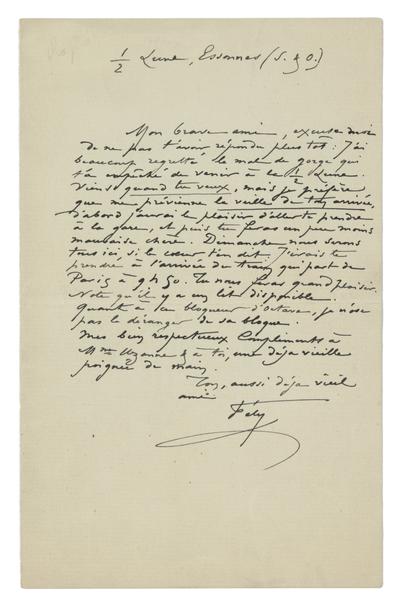 1/2 Lune, Essonnes (S. & O.)
Mon brave ami, excuse moi
de ne pas t'avoir répondu plus tôt: J'ai
beaucoup regretté le mal de gorge qui
t'a empêché de venir à la 1/2 Lune.
Viens quand tu veux, mais je préfère
que me prévienne la veille de ton arrivée,
d'abord j'aurai le plaisir d'aller te prendre
à la gare, et puis tu feras un peu moins
mauvaise chère. Dimanche nous serons
tous ici, si le cœur t'en dit. J'irais te
prendre à l'arrivée du train qui part de
Paris à 9h50. Tu nous feras grand plaisir.
Note qu'il y a un lit disponible.
Quant à ce bloqueur d'Octave, je n'ose
pas le déranger de sa blogue.
Mes bien respectueux Compliments à
Mme Uzanne & à toi, une déjà vieille
poignée de main.
Ton, aussi déjà vieil
ami
Fély